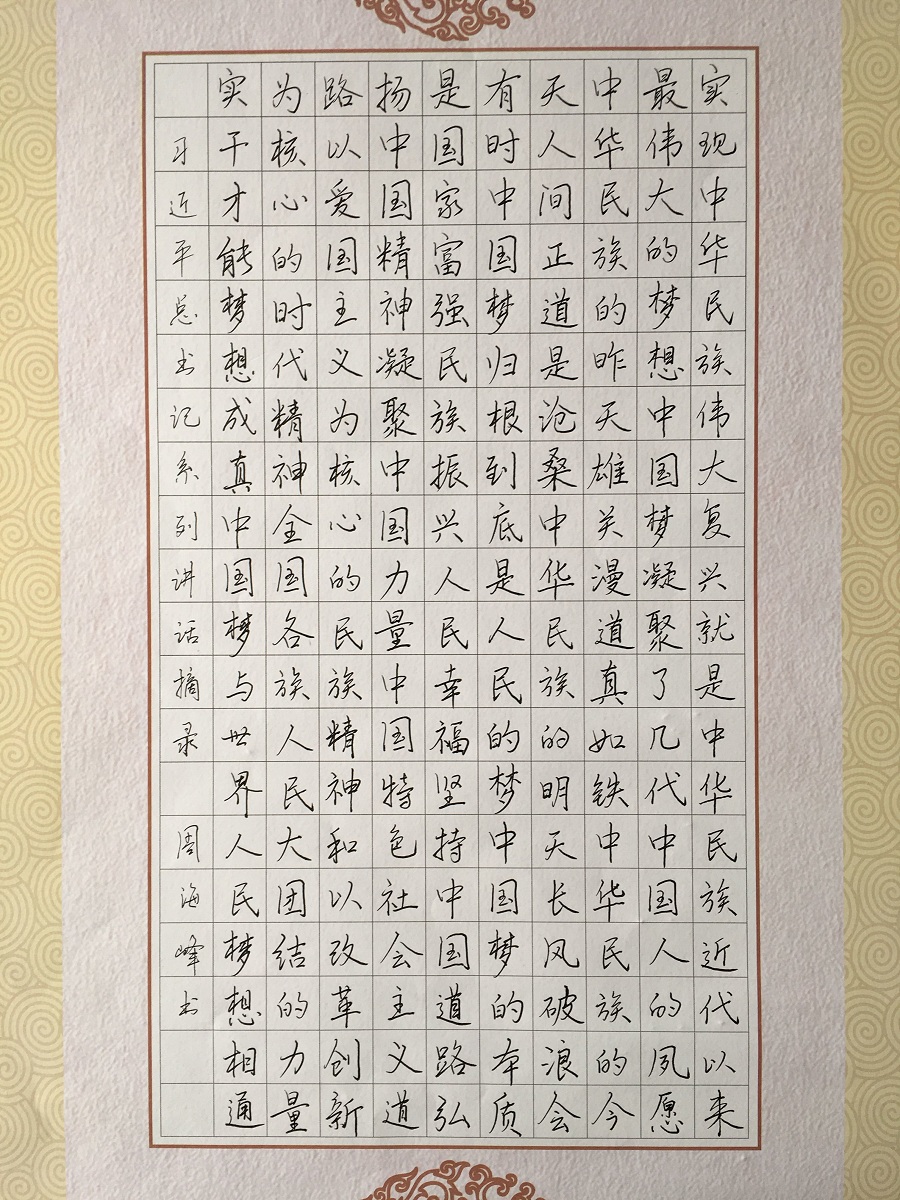 实现中华民族伟大复兴就是中华民族近代以来
最伟大的梦想中国梦凝聚了几代中国人的夙愿
中华民族的昨天雄关漫道真如铁中华民族的今
天人间正道是沧桑中华民族的明天长风破浪会
有时中国梦归根到底是人民的梦中国梦的本质
是国家富强民族振兴人民幸福坚持中国道路弘
扬中国精神凝聚中国力量中国特色社会主义道
路以爱国主义为核心的民族精神和以改革创新
为核心的时代精神全国各族人民大团结的力量
实干才能梦想成真中国梦与世界人民梦想相通
习近平总书记系列讲话摘录 周海峰书